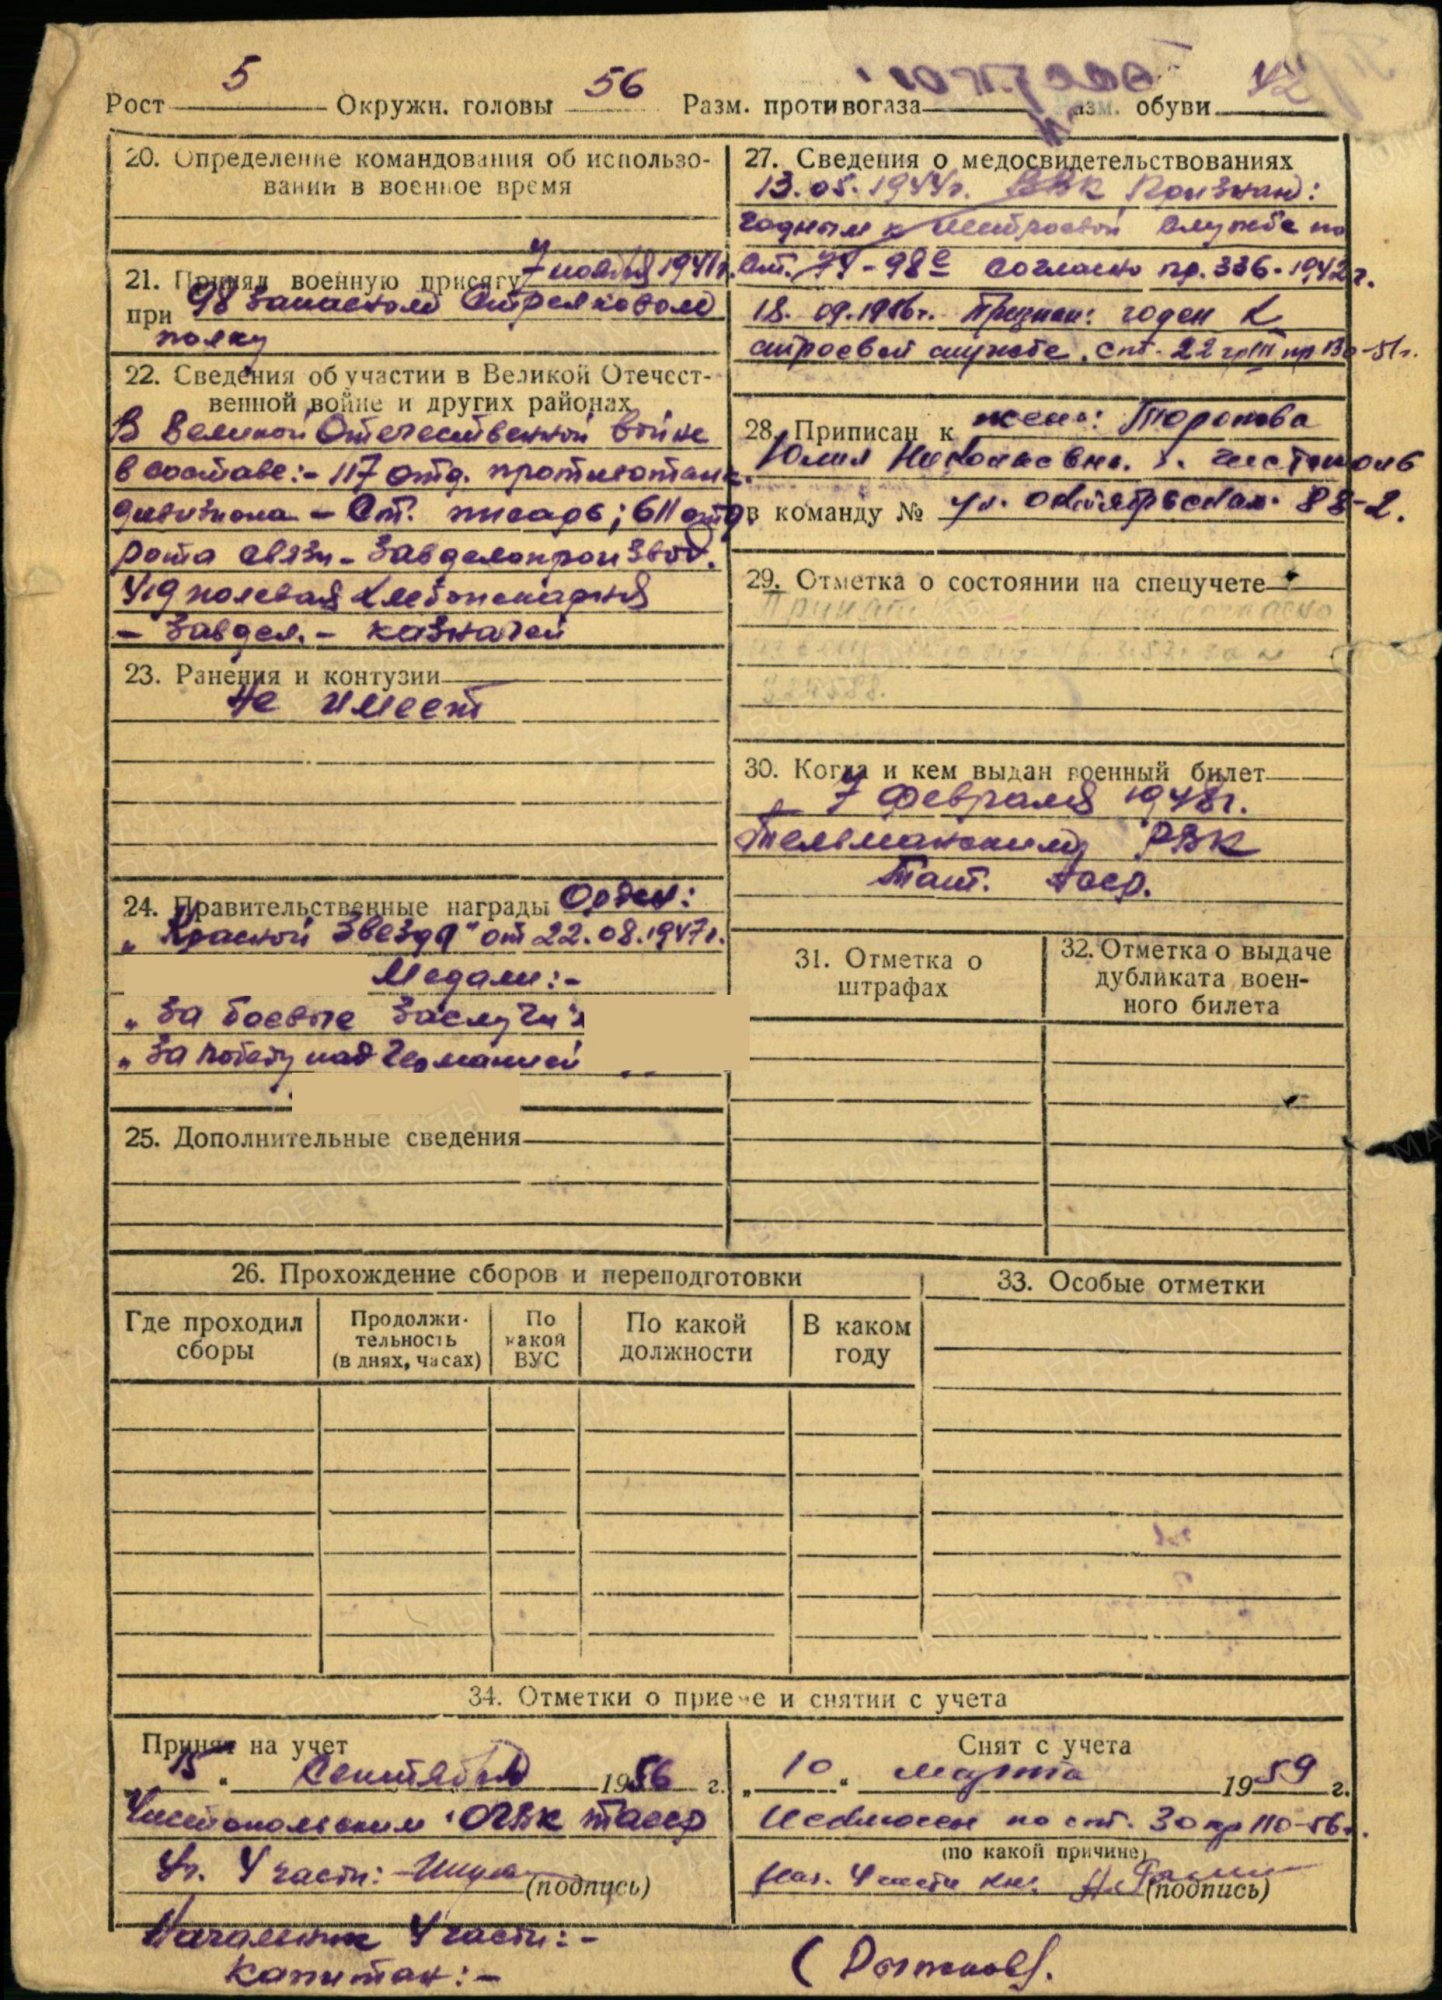 Рост 5 Окружн. головы 56 Разм. противогаза Разм. обуви 42
20. Определение командования об использо-
вании в военное время
21. Принял военную присягу 7 ноября 1941г.
при 98 запасном стрелковом
полку
22. Сведения об участии в Великой Отечест-
венной войне и других районах
В Великой Отечественной войне
в составе:- 117 отд. противотанк.
дивизиона – Ст. писарь; 611 отд.
рота связи – завделопроизвод.
полевая хлебопекарня
– завдел. – казначей
23. Ранения и контузии
Не имеет
24. Правительственные награды Орден:
„Красной Звезда" от 22.08.1947г.
Медали:-
„За боевые заслуги"
„За победу над Германией
25. Дополнительные сведения
26. Прохождение сборов и переподготовки
Где проходил сборы
Продолжи-
тельность
(в днях, часах)
По
какой
ВУС
По какой
должности
В каком
году
27. Сведения о медосвидетельствованиях
13.05.1944г. ВВК Признан:
годным к нестроевой службе по
ст. 74-98е согласно пр. 336-1942г.
18.09.1956г. Признан: годен к
строевой службе. ст. 22 гр III пр 130-51г.
28. Приписан к жена: Торопова
Юлия Николаевна г. Чистополь
в команду № ул. Октябрьская 88-2.
29. Отметка о состоянии на спецучете
30. Когда и кем выдан военный билет
7 февраля 1948г.
Тельманским РВК
Тат. Асср.
31. Отметка о
штрафах
32. Отметка о выдаче
дубликата воен-
ного билета
33. Особые отметки
34. Отметки о приеме и снятии с учета
Принят на учет
15 " Сентября 1956 г.
Чистопольским ОГВК ТАССР
Части:
(подпись)
Начальник 4 части:-
Капитан:-
Снят с учета
„ 10 " марта 1959 г.
Исключен по ст. 30 пр 110-56г.
(по какой причине)
Нач. 4 части
(подпись)